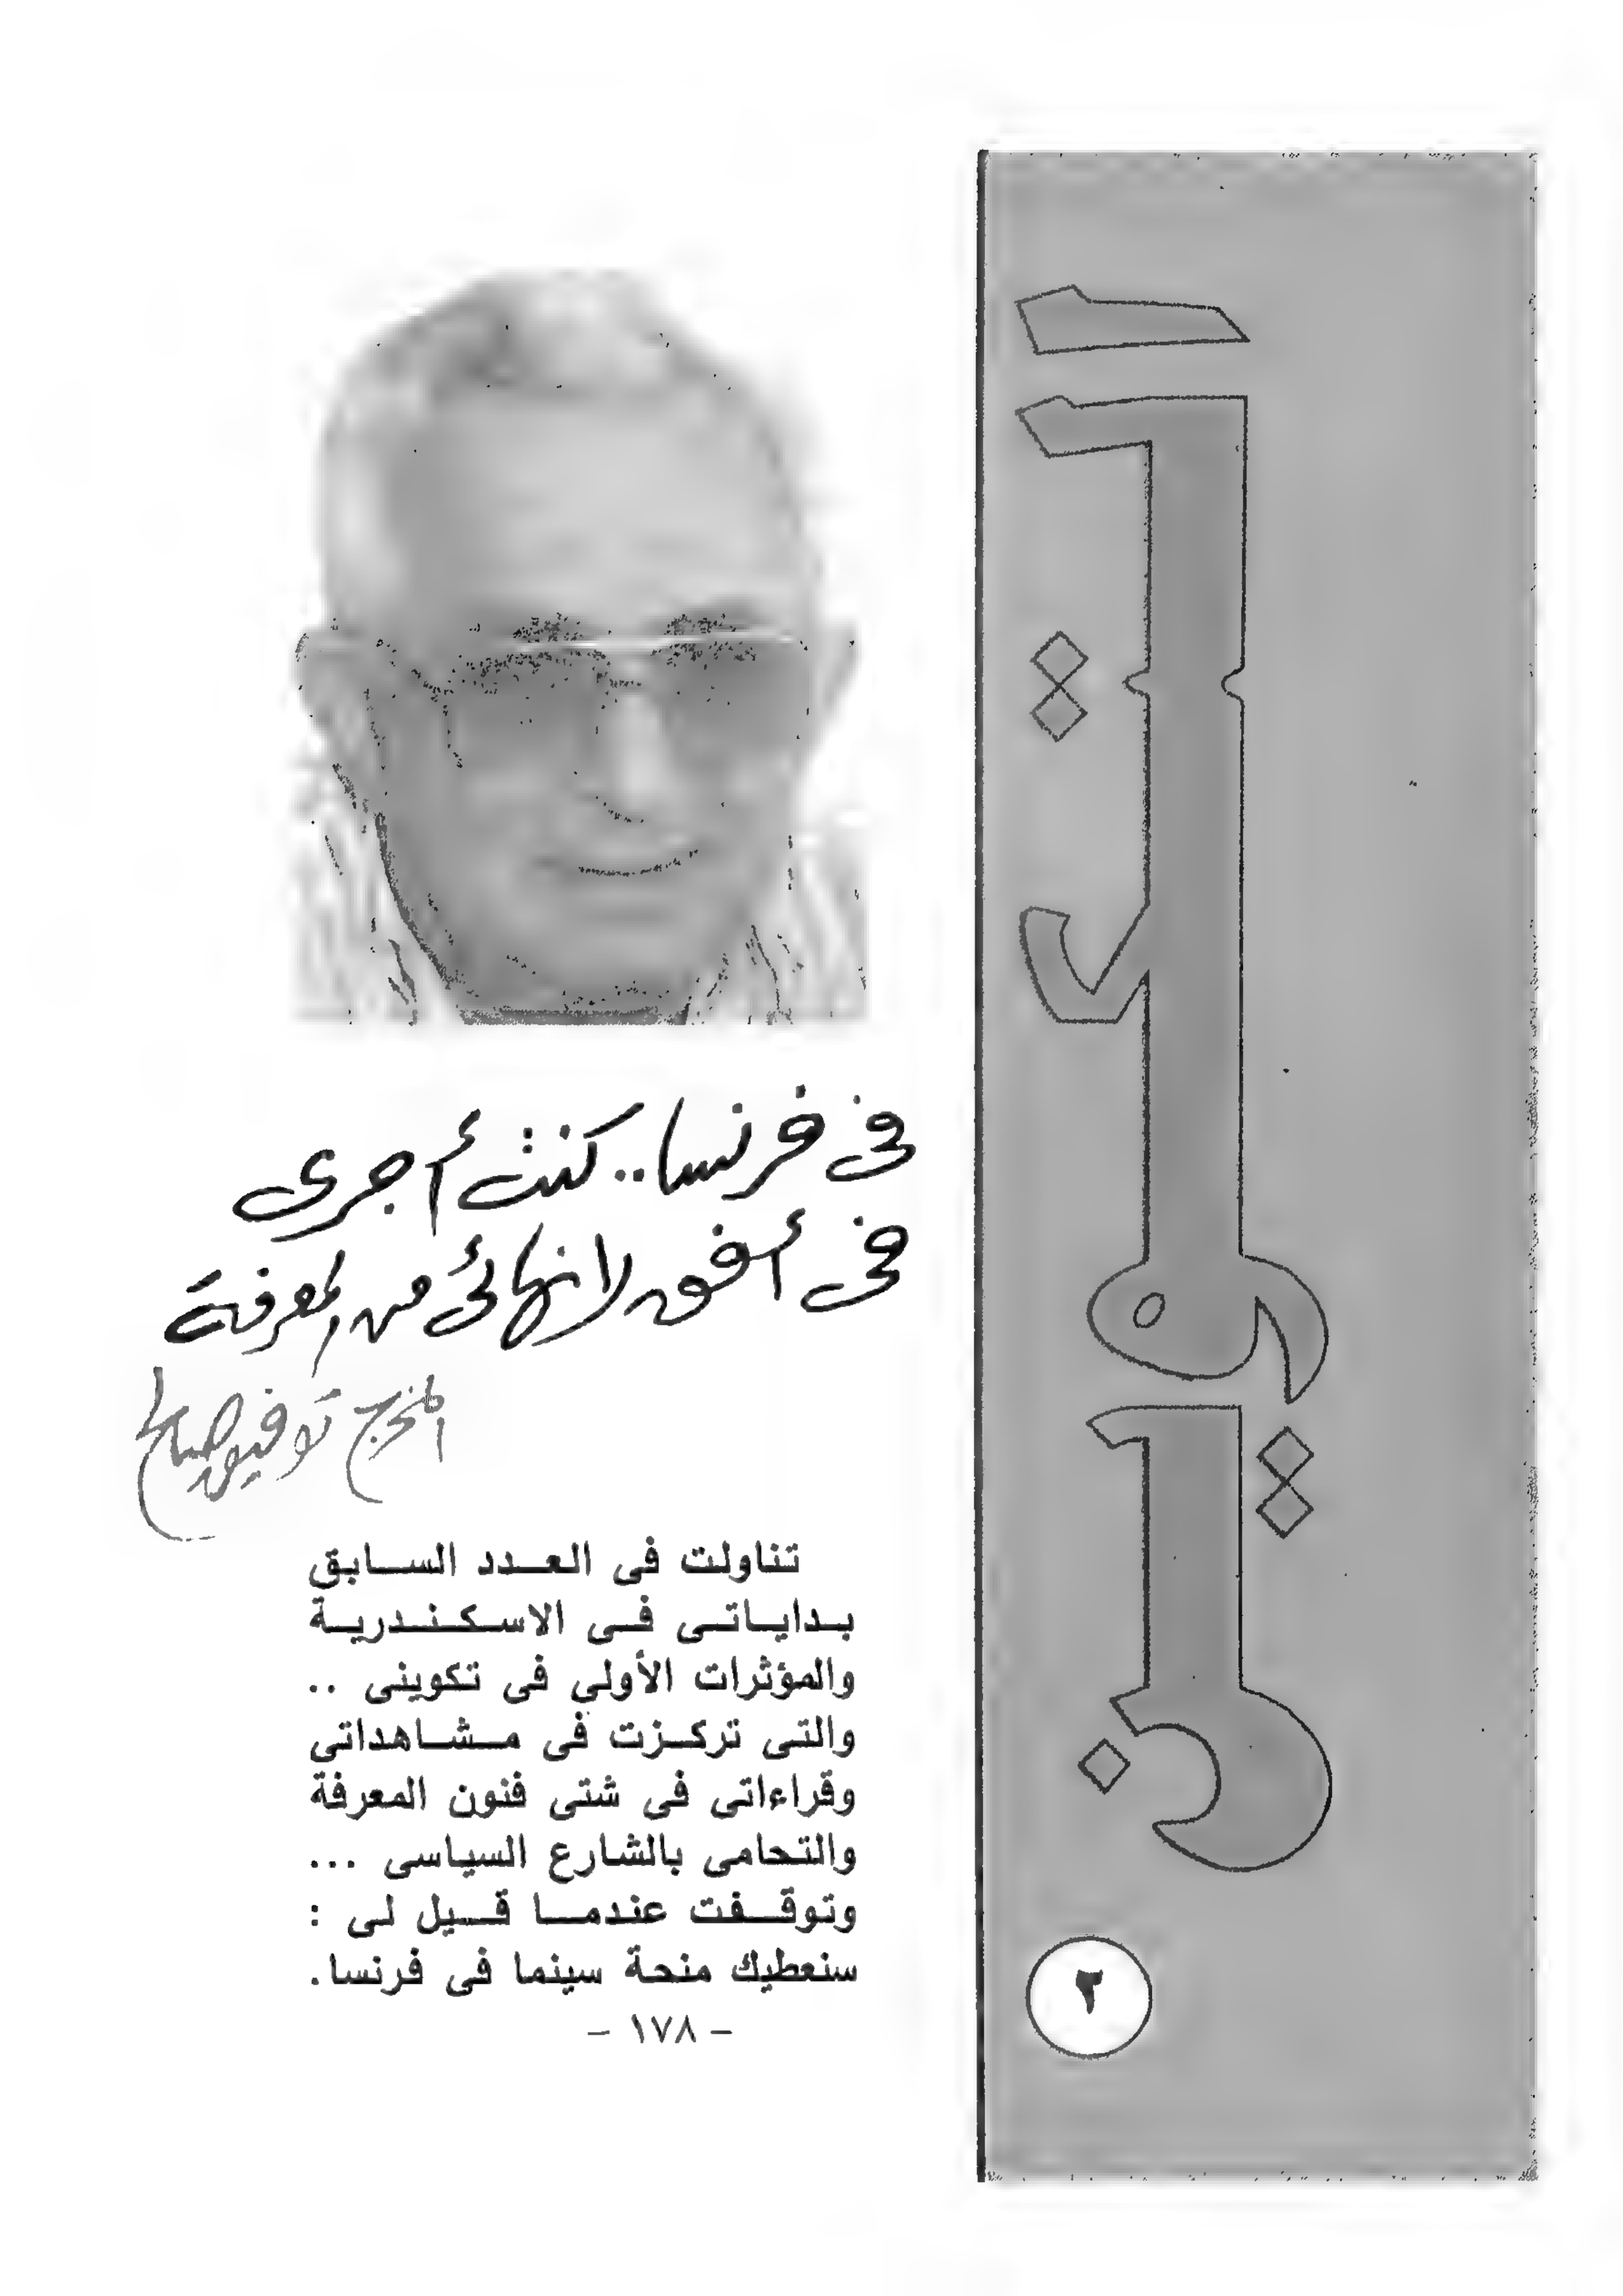 التكوين
٢
فى فرنسا.. كنت أجرى
فى أفق لا نهائى من المعرفة
المخرج توفيق صالح
تناولت فى العدد السابق
بداياتى فى الاسكندرية
والمؤثرات الأولي فى تكوينى ..
والتى تركزت فى مشاهداتى
وقراءاتى فى شتى فنون المعرفة
والتحامى بالشارع السياسى ...
وتوقفت عندما قيل لى :
سنعطيك منحة سينما فى فرنسا.
- ١٧٨ -